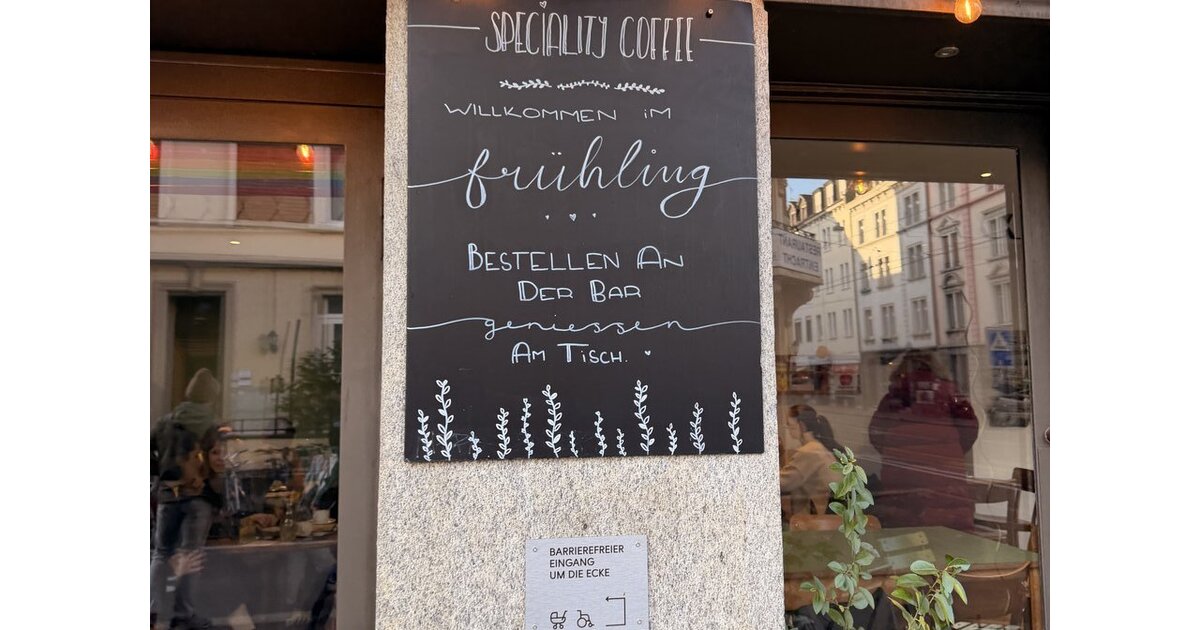 SPECIALITY COFFEE
WILLKOMMEN iM
frühling
BESTELLEN AN
DER BAR
geniessen
AM TISCH.
RESTAURANT
EINTRACHT
BARRIEREFREIER
EINGANG
UM DIE ECKE